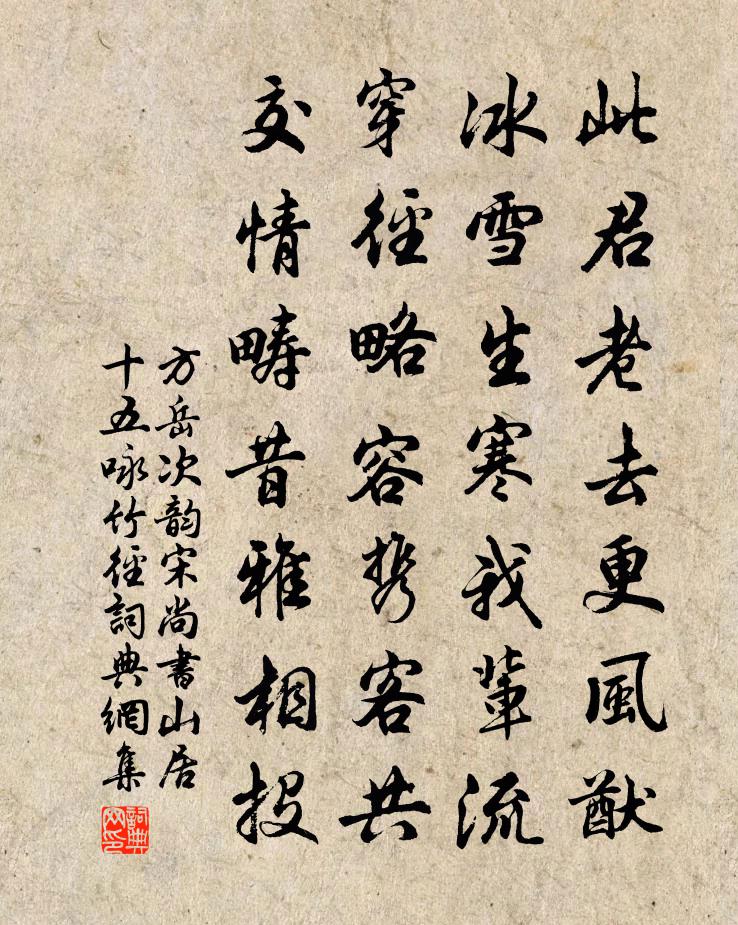 此君老去更風猷
冰雪生寒我輩流
穿徑略容携客共
交情疇昔雅相投
方岳次韵宋尚書山居
十五咏竹徑詞典網集
詞典
网印